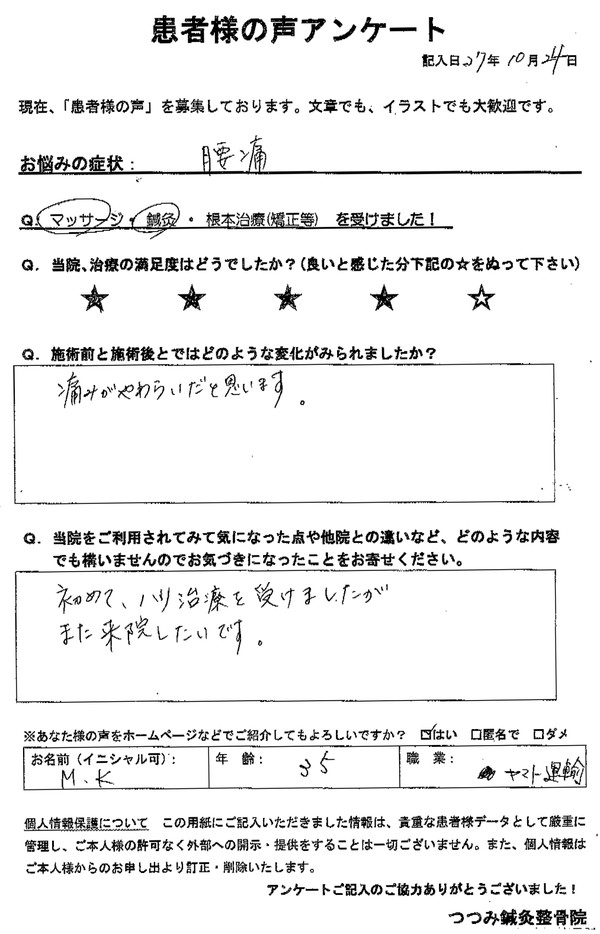 患者様の声アンケート
記入日27年10月24日
現在、「患者様の声」を募集しております。文章でも、イラストでも大歓迎です。
お悩みの症状： 腰痛
Q. マッサージ・鍼灸・根本治療(矯正等) を受けました！
Q. 当院、治療の満足度はどうでしたか？(良いと感じた分下記の☆をぬって下さい)
★ ★ ★ ★ ☆
Q. 施術前と施術後とではどのような変化がみられましたか？
痛みがやわらいだと思います。
Q. 当院をご利用されてみて気になった点や他院との違いなど、どのような内容
でも構いませんのでお気づきになったことをお寄せください。
初めて、ハリ治療を受けましたが
また来院したいです。
※あなた様の声をホームページなどでご紹介してもよろしいですか？ ☑はい □匿名で □ダメ
お名前（イニシャル可）： M.K 年 齢： 35 職 業： ヤマト運輸
個人情報保護について この用紙にご記入いただきました情報は、貴重な患者様データとして厳重に
管理し、ご本人様の許可なく外部への開示・提供をすることは一切ございません。また、個人情報は
ご本人様からのお申し出より訂正・削除いたします。
アンケートご記入のご協力ありがとうございました！
つつみ鍼灸整骨院